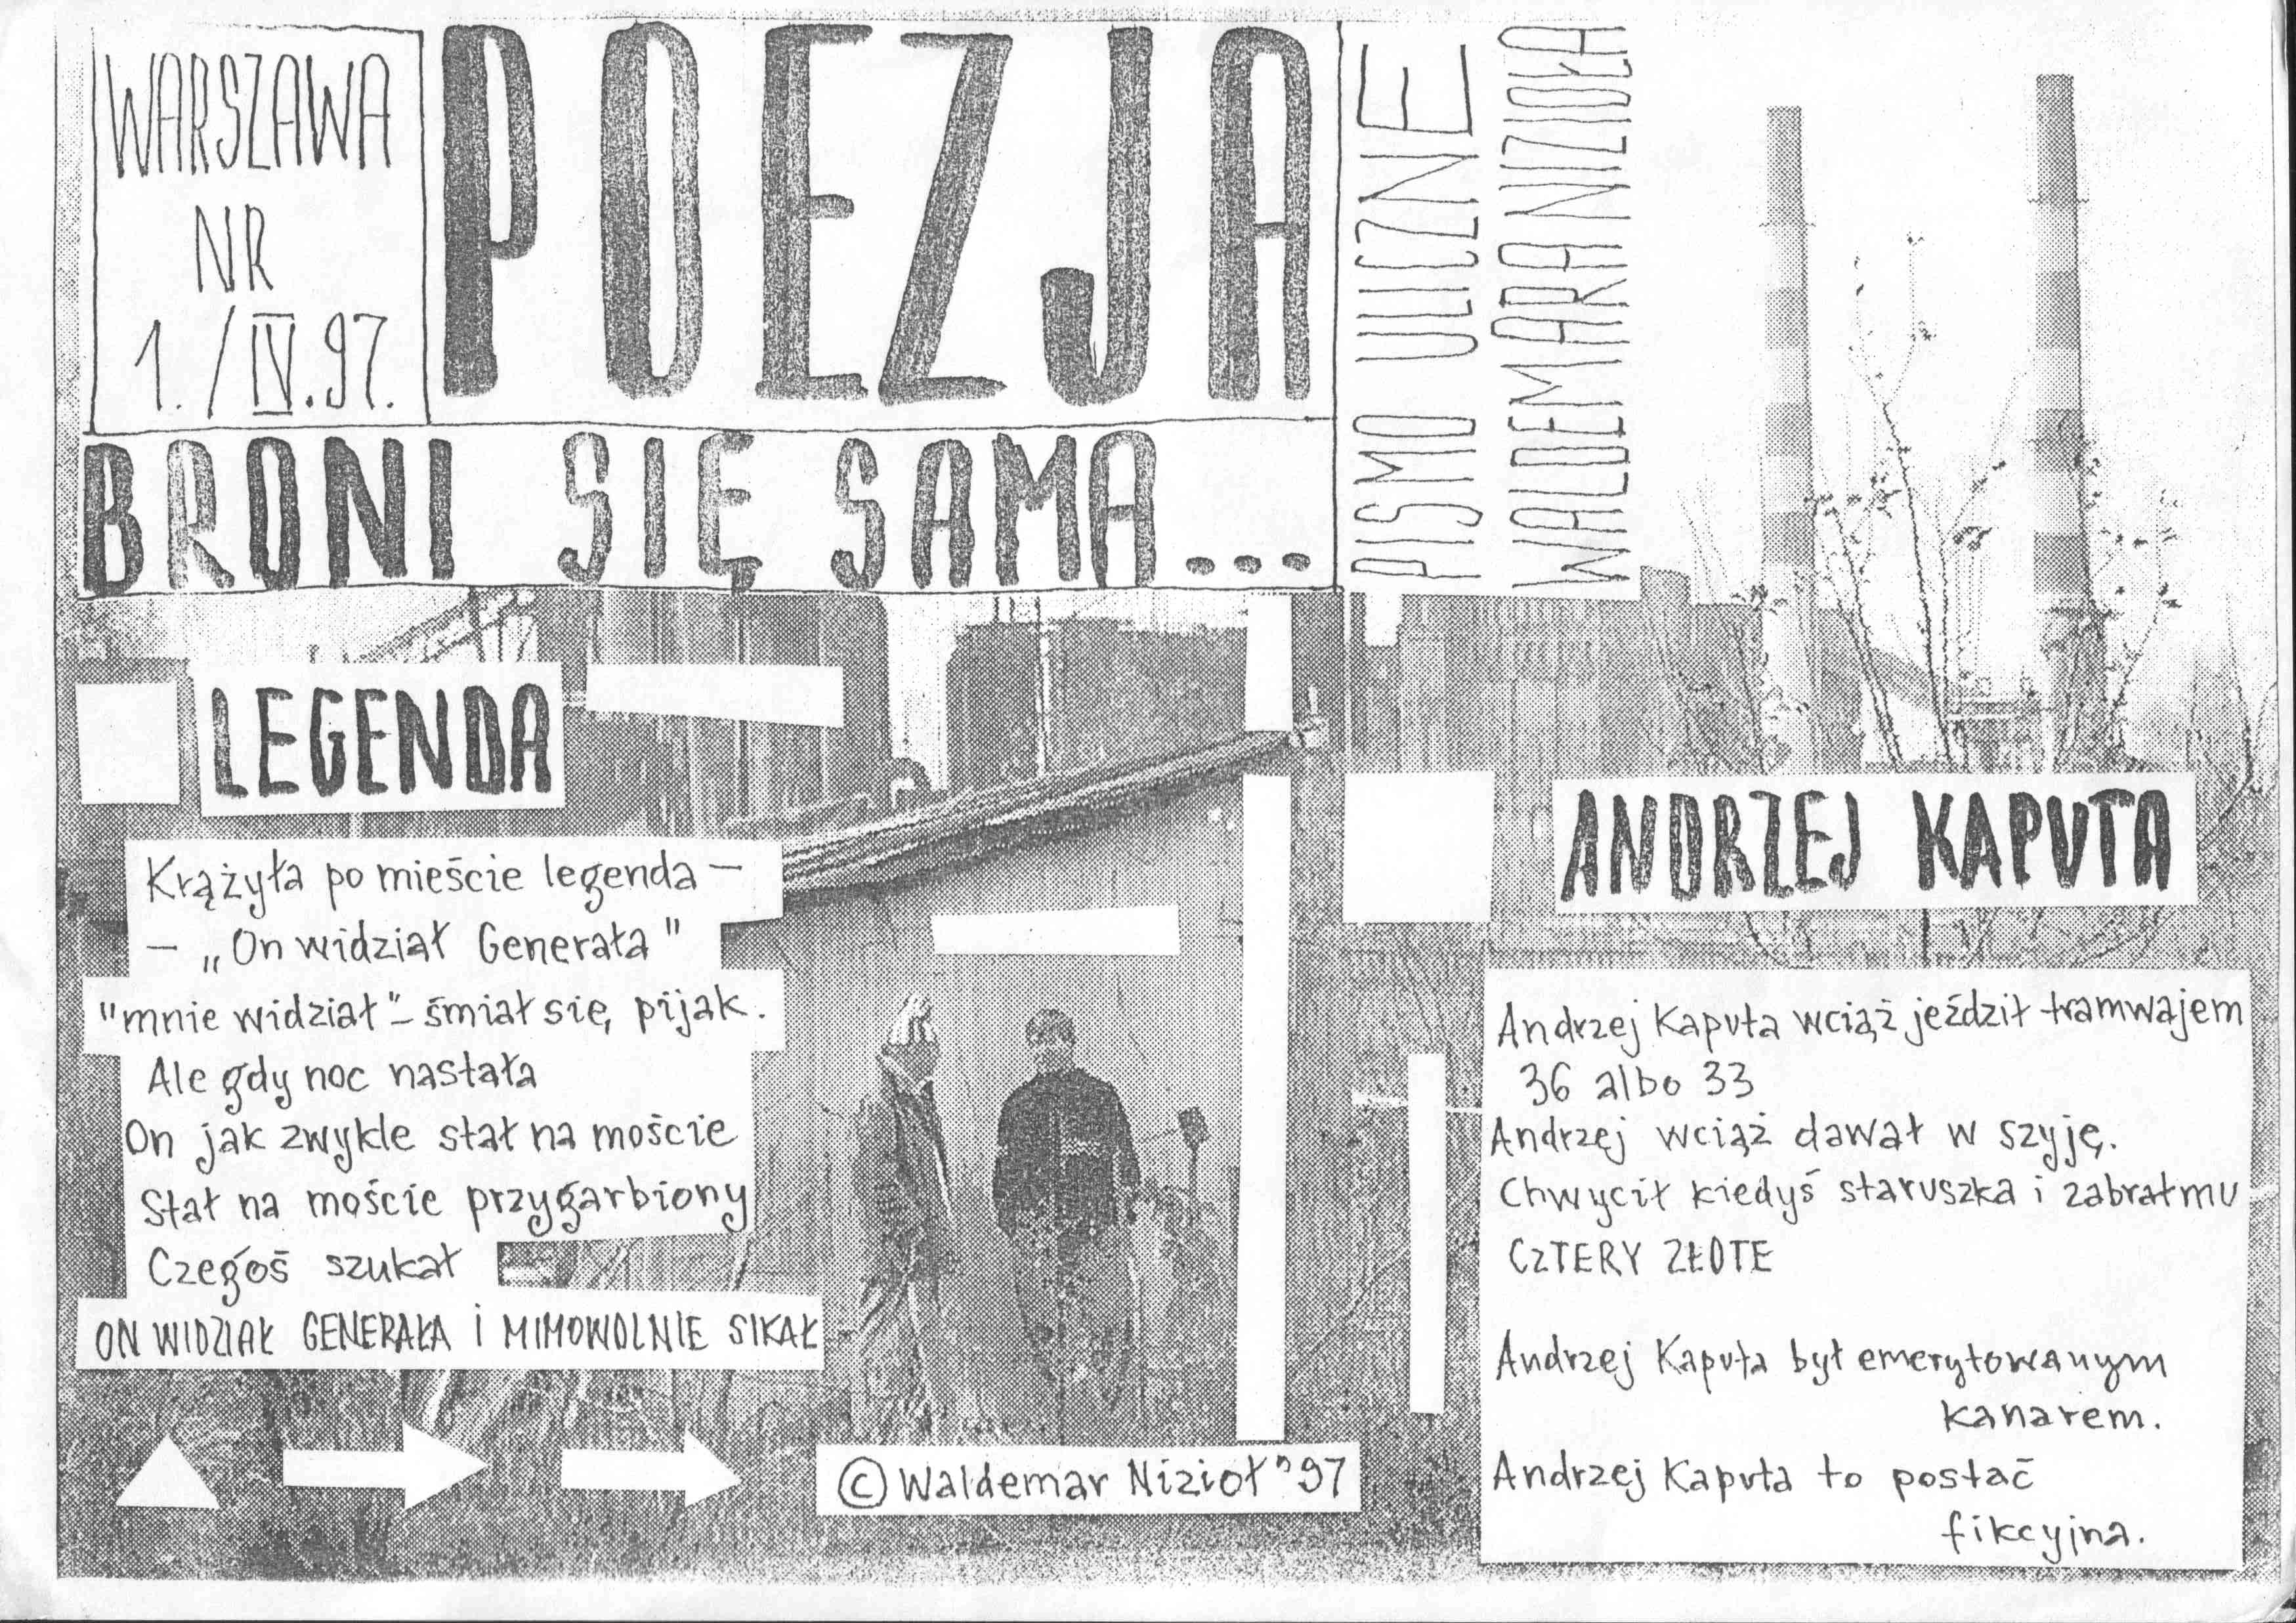 WARSZAWA
NR
1./IV.97.
POEZJA
BRONI SIĘ SAMA...
PISMO ULICZNE
WALDEMARA NIZIOŁA
LEGENDA
Krążyła po mieście legenda –
– „On widział Generała"
"mnie widział" – śmiał się, pijak.
Ale gdy noc nastała
On jak zwykle stał na moście
Stał na moście przygarbiony
Czegoś szukał
ON WIDZIAŁ GENERAŁA i MIMOWOLNIE SIKAŁ
© Waldemar Nizioł "97
ANDRZEJ KAPUTA
Andrzej Kaputa wciąż jeździł tramwajem
36 albo 33
Andrzej wciąż dawał w szyję.
Chwycił kiedyś staruszka i zabrał mu
CZTERY ZŁOTE
Andrzej Kaputa był emerytowanym
kanarem.
Andrzej Kaputa to postać
fikcyjna.